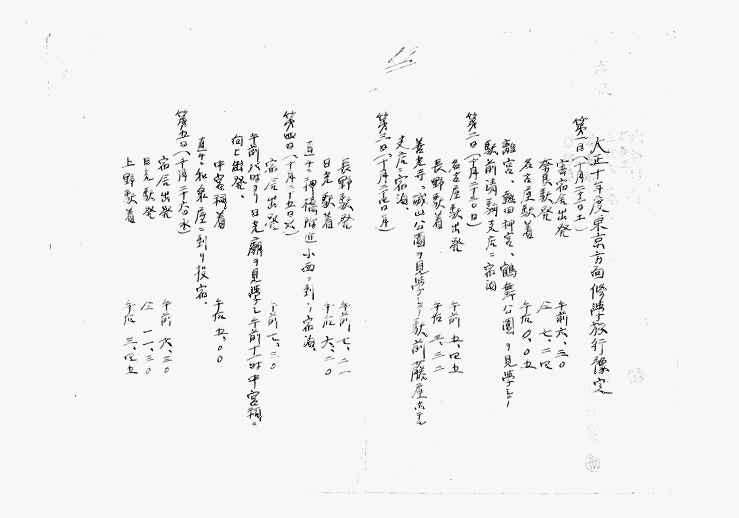 大正十年度東京方面修学旅行豫定
第一日(十月二十二日土)
寄宿舎出発 午前六、三〇
奈良駅発 仝 七、二四
名古屋駅着 午后〇、〇五
離宮、熱田神宮、鶴舞公園ヲ見学シテ
駅前清駒支店ニ宿泊
第二日(十月二十三日日)
名古屋駅出発 午前五、四五
長野駅着 午后三、三二
善光寺、城山公園ヲ見学シテ駅前藤屋ホテル
支店ニ宿泊
第三日(十月二十四日月)
長野駅発 午前七、二一
日光駅着 午后六、二〇
直チニ神橋附近小西ニ到リ宿泊
第四日(十月二十五日火)
宿舎出発 午前七、三〇
午前八時ヨリ日光廟ヲ見学シ午前十一時中宮祠ニ
向ヒ出発、
中宮祠着 午后五、〇〇
直チニ和泉屋ニ到リ投宿、
第五日(十月二十六日水)
宿舎出発 午前六、三〇
日光駅発 仝一一、三〇
上野駅着 午后三、四五